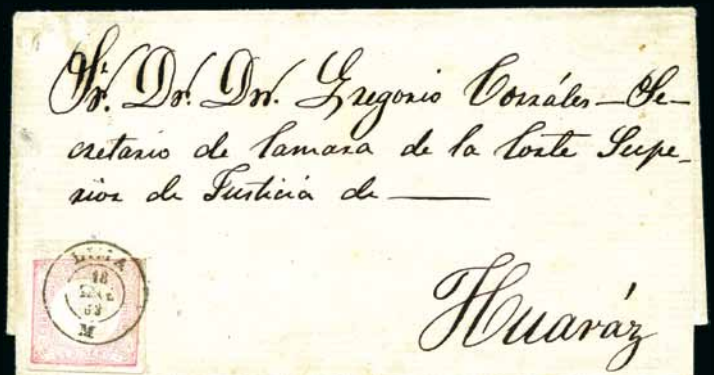 Sr. Dr. Dn. Gregorio Corzáles—Se-
cretario de Camara de la Corte Supe-
rior de Justicia de ———
Huaráz
LIMA
18
63
M